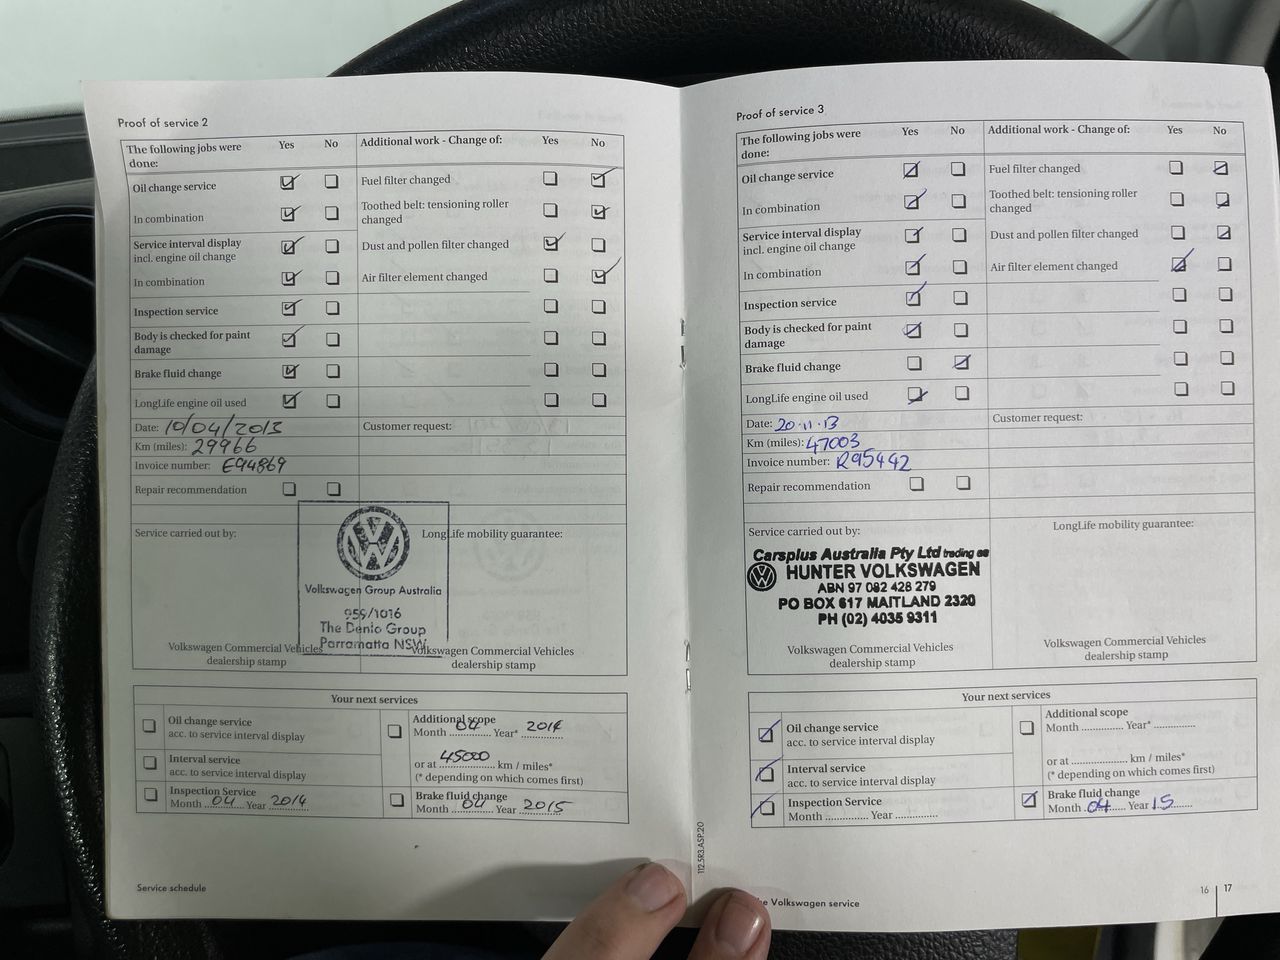 Proof of service 2
The following jobs were done: Yes No Additional work - Change of: Yes No
Oil change service Fuel filter changed
In combination Toothed belt: tensioning roller changed
Service interval display incl. engine oil change Dust and pollen filter changed
In combination Air filter element changed
Inspection service
Body is checked for paint damage
Brake fluid change
LongLife engine oil used
Date: 10/04/2013 Customer request:
Km (miles): 29966
Invoice number: E94869
Repair recommendation
Service carried out by: LongLife mobility guarantee:
Volkswagen Group Australia
959/1016
The Denlo Group
Parramatta NSW
Volkswagen Commercial Vehicles Volkswagen Commercial Vehicles
dealership stamp dealership stamp
Your next services
Oil change service
acc. to service interval display
Additional scope
Month 04 Year* 2014
Interval service
acc. to service interval display
or at 45000 km / miles*
(* depending on which comes first)
Inspection Service
Month 04 Year 2014
Brake fluid change
Month 04 Year 2015
Service schedule
Proof of service 3
The following jobs were done: Yes No Additional work - Change of: Yes No
Oil change service Fuel filter changed
In combination Toothed belt: tensioning roller changed
Service interval display incl. engine oil change Dust and pollen filter changed
In combination Air filter element changed
Inspection service
Body is checked for paint damage
Brake fluid change
LongLife engine oil used
Date: 20·11·13 Customer request:
Km (miles): 47003
Invoice number: R95442
Repair recommendation
Service carried out by: LongLife mobility guarantee:
Carsplus Australia Pty Ltd trading as
HUNTER VOLKSWAGEN
ABN 97 082 428 279
PO BOX 617 MAITLAND 2320
PH (02) 4035 9311
Volkswagen Commercial Vehicles Volkswagen Commercial Vehicles
dealership stamp dealership stamp
Your next services
Oil change service
acc. to service interval display
Additional scope
Month Year*
Interval service
acc. to service interval display
or at km / miles*
(* depending on which comes first)
Inspection Service
Month Year
Brake fluid change
Month 04 Year 15
112.5R3.ASP.20
Volkswagen service
16 | 17